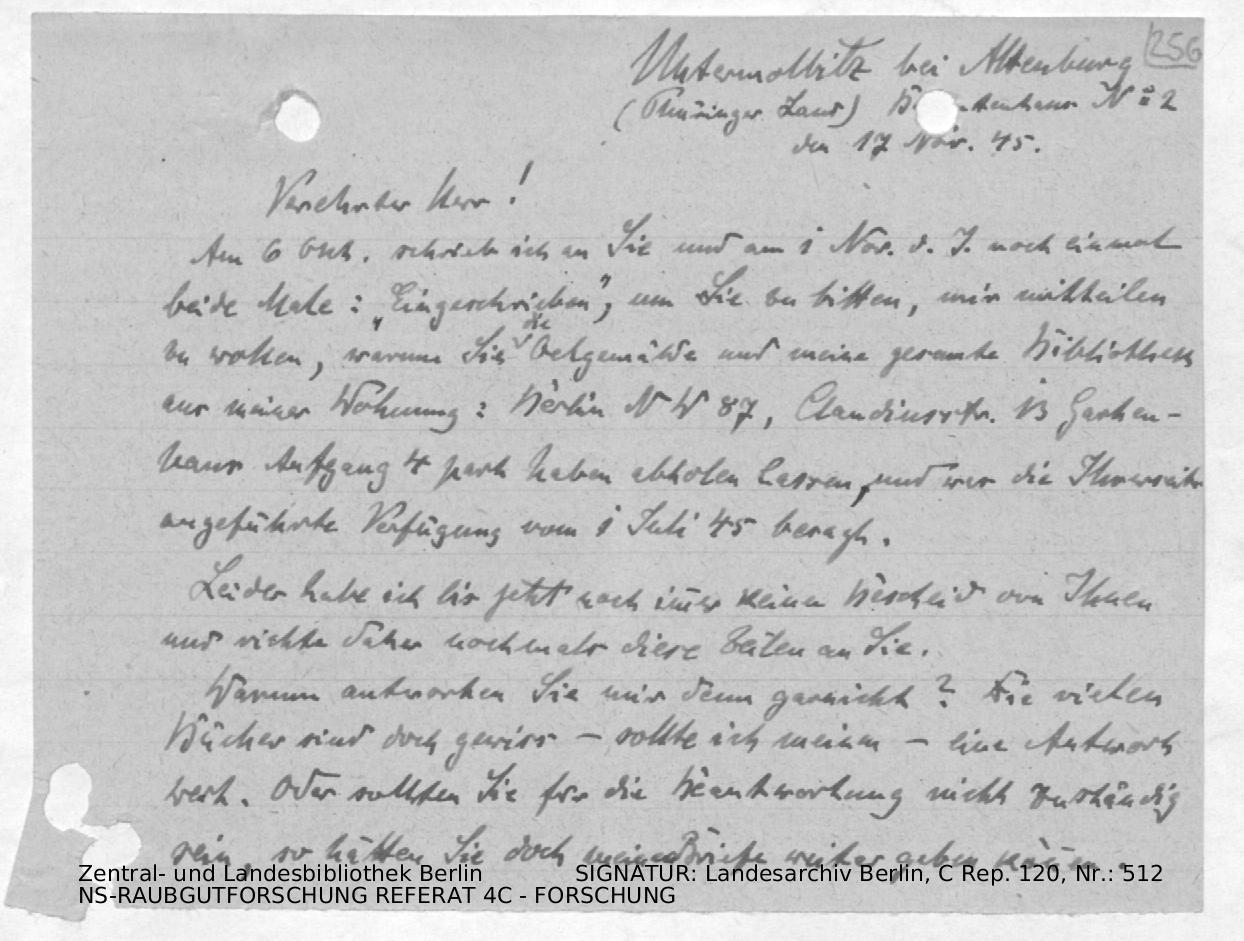 256
Untermolbitz bei Altenburg
(Thüringer Land) No 2
den 17 Nov. 45.
Verehrter Herr!
Am 6 Okt. schrieb ich an Sie und am 1 Nov. d. J. noch einmal
beide Male: „Eingeschrieben”, um Sie zu bitten, mir mitteilen
zu wollen, warum Sie die Oelgemälde und meine gesamte Bibliothek
aus meiner Wohnung: Berlin NW 87, Claudiusstr. 13 Garten-
haus Aufgang 4 part haben abholen lassen, und was die Ihrerseits
angeführte Verfügung vom 1 Juli 45 besagt.
Leider habe ich bis jetzt noch im̅er keinen Bescheid von Ihnen
und richte daher nochmals diese Zeilen an Sie.
Warum antworten Sie mir denn garnicht? Die vielen
Bücher sind doch gewiss – sollte ich meinen – eine Antwort
wert. Oder sollten Sie für die Beantwortung nicht zuständig
sein, so hätten Sie doch meine Briefe weiter geben kön̅en.
Zentral- und Landesbibliothek Berlin SIGNATUR: Landesarchiv Berlin, C Rep. 120, Nr.: 512
NS-RAUBGUTFORSCHUNG REFERAT 4C - FORSCHUNG